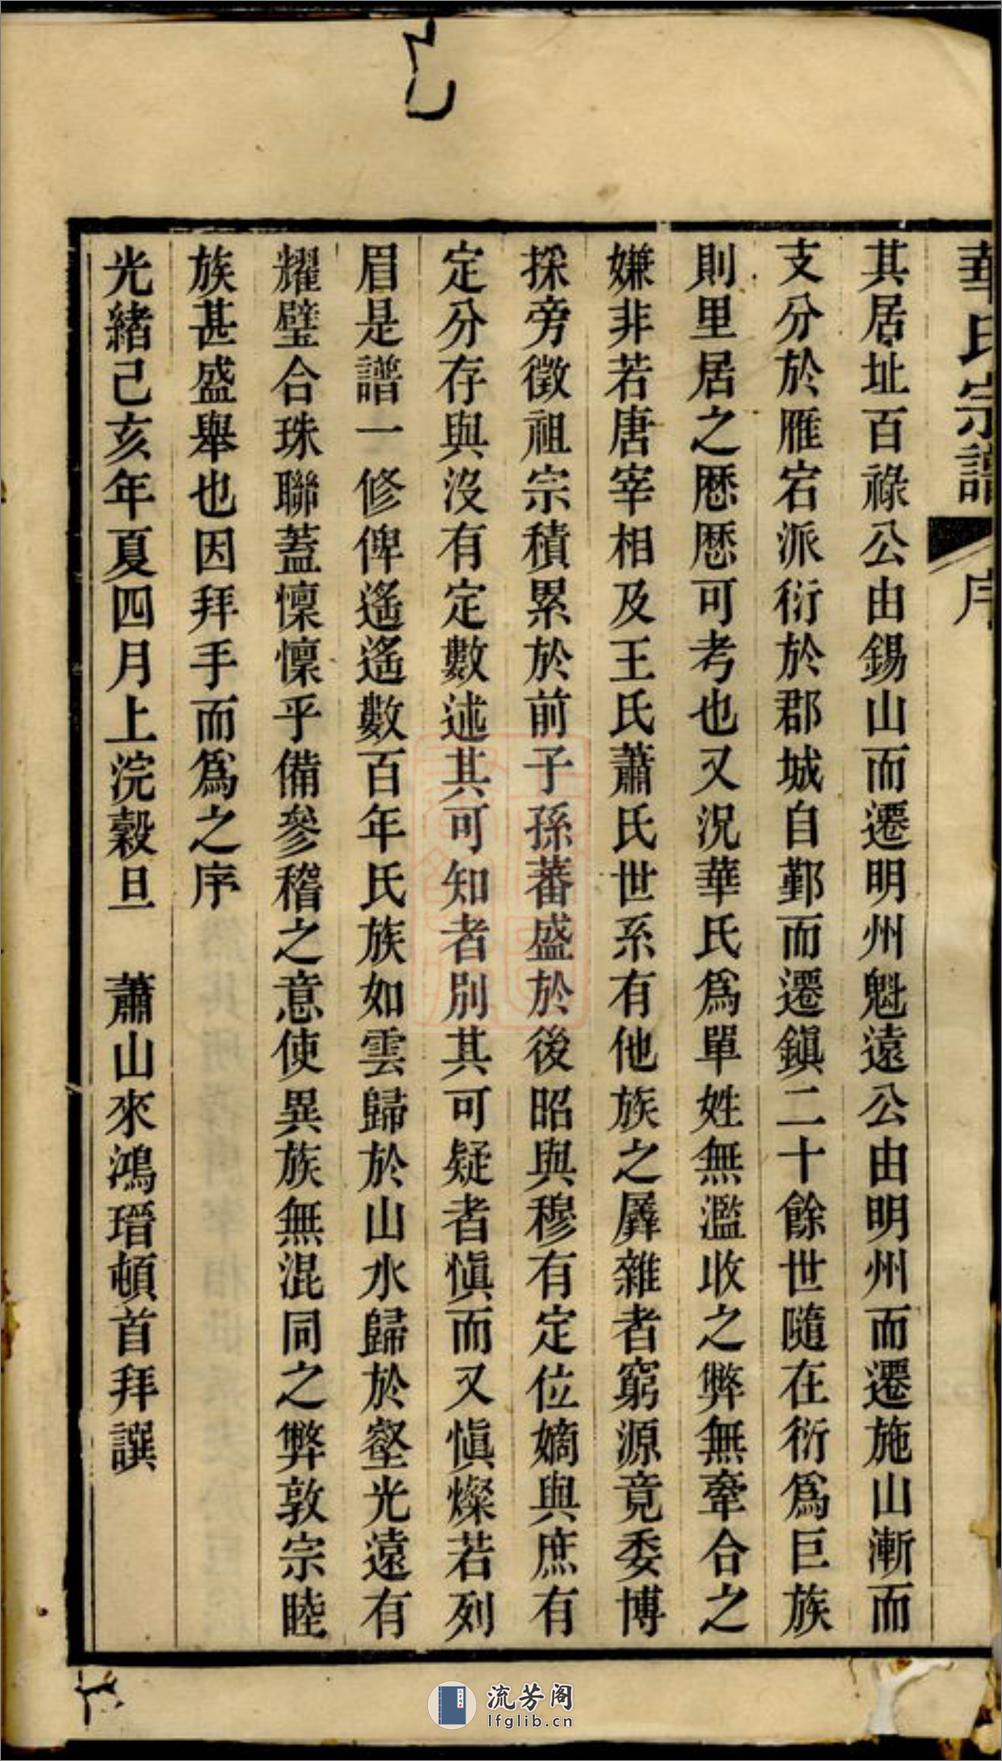 華氏宗譜 序
其居址百祿公由錫山而遷明州魁遠公由明州而遷施山漸而
支分於雁宕派衍於郡城自鄞而遷鎮二十餘世隨在衍爲巨族
則里居之歷歷可考也又況華氏爲單姓無濫收之弊無牽合之
嫌非若唐宰相及王氏蕭氏世系有他族之羼雜者窮源竟委博
採旁徵祖宗積累於前子孫蕃盛於後昭與穆有定位嫡與庶有
定分存與沒有定數述其可知者別其可疑者愼而又愼燦若列
眉是譜一修俾遙遙數百年氏族如雲歸於山水歸於壑光遠有
耀璧合珠聯蓋懍懍乎備參稽之意使異族無混同之弊敦宗睦
族甚盛舉也因拜手而爲之序
光緒己亥年夏四月上浣穀旦 蕭山來鴻瑨頓首拜譔
流芳阁
lfglib.cn